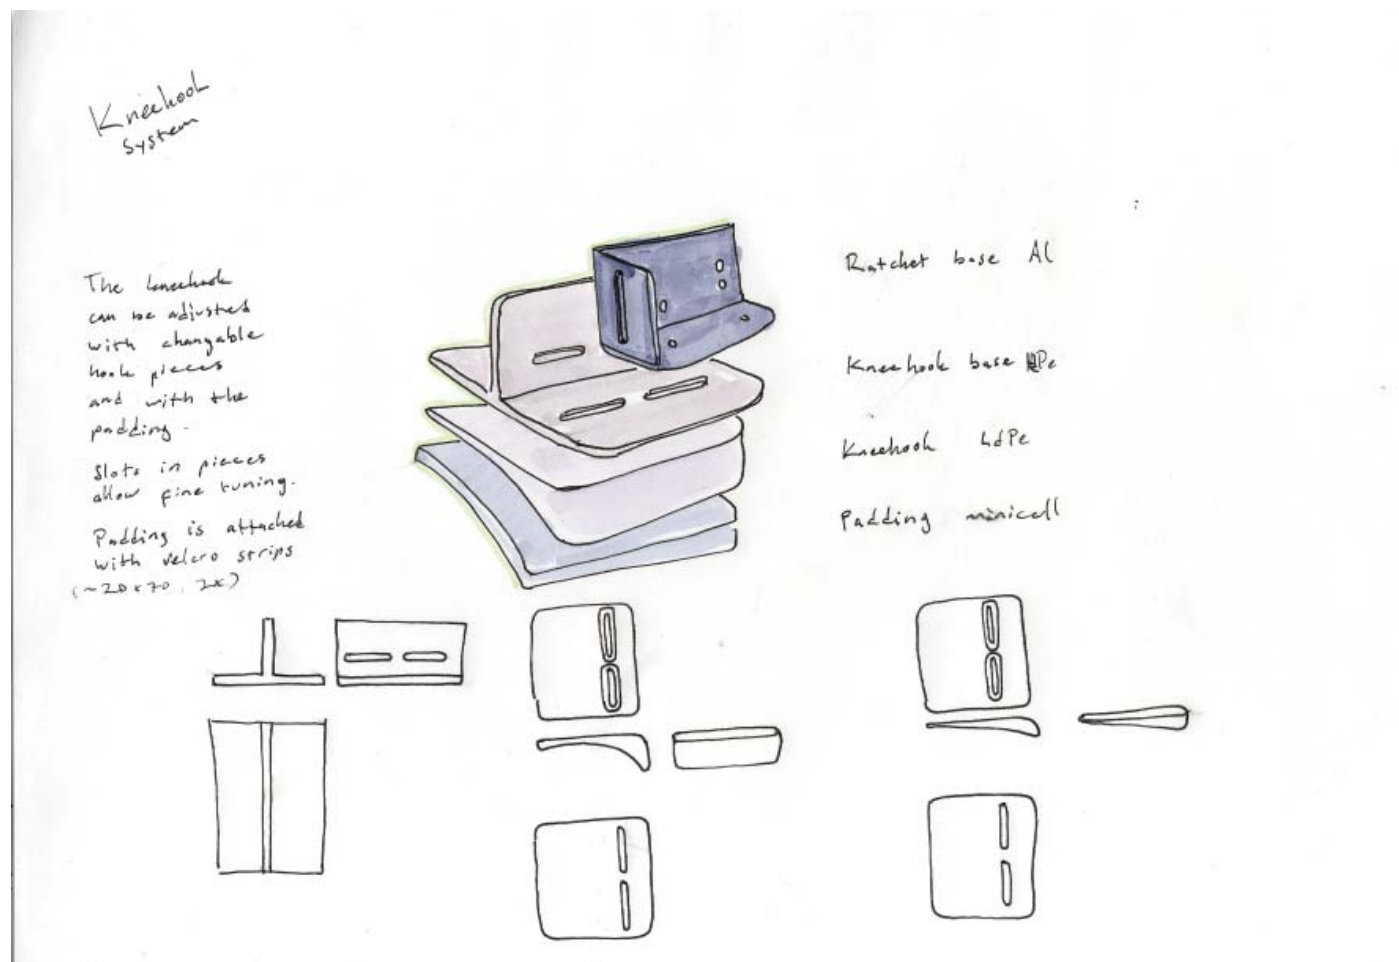 Kneehook
System
The kneehook
can be adjusted
with changable
hook pieces
and with the
padding.
Slots in pieces
allow fine tuning.
Padding is attached
with velcro strips
(~20x70, 2x)
Ratchet base Al
Kneehook base
Kneehook hdPe
Padding minicell